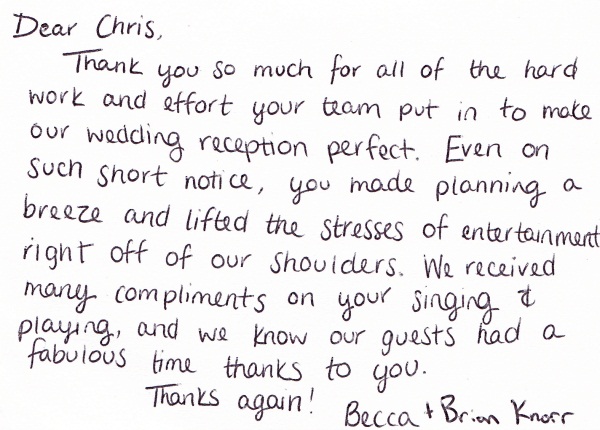 Dear Chris,
Thank you so much for all of the hard
work and effort your team put in to make
our wedding reception perfect. Even on
such short notice, you made planning a
breeze and lifted the stresses of entertainment
right off of our shoulders. We received
many compliments on your singing &
playing, and we know our guests had a
fabulous time thanks to you.
Thanks again!
Becca + Brian Knorr